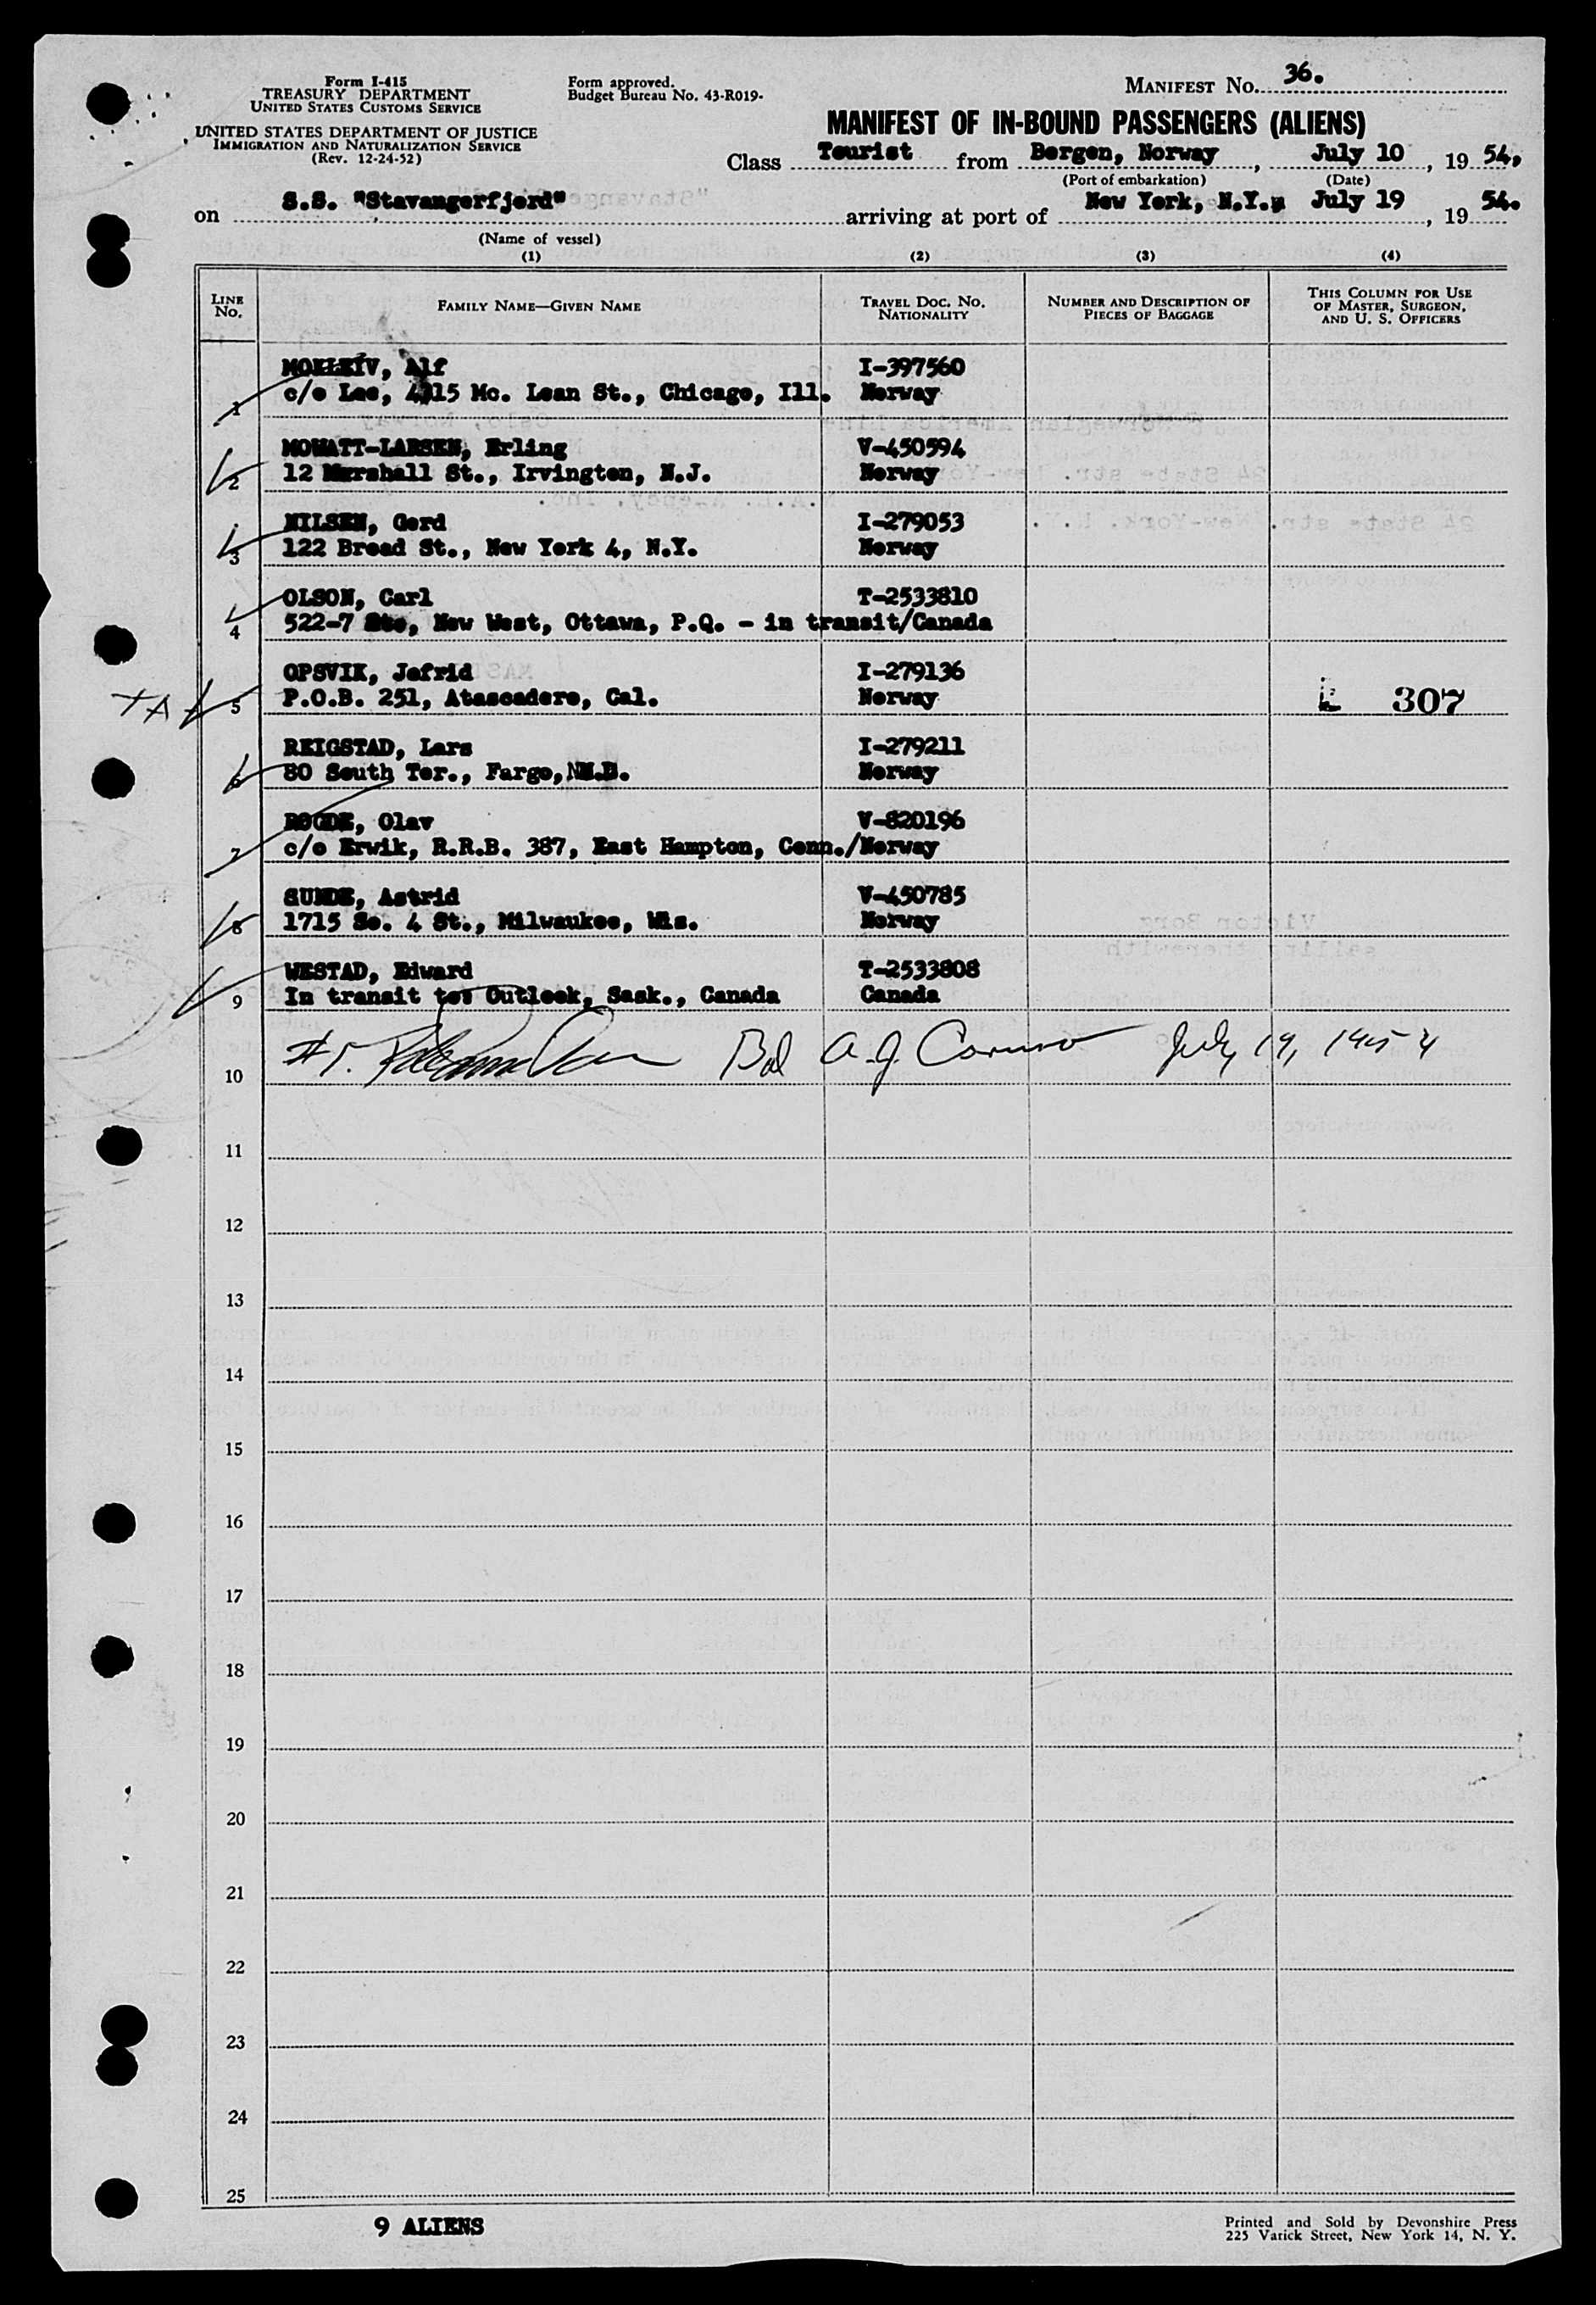 Form I-415
TREASURY DEPARTMENT
UNITED STATES CUSTOMS SERVICE
UNITED STATES DEPARTMENT OF JUSTICE
IMMIGRATION AND NATURALIZATION SERVICE
(Rev. 12-24-52)
Form approved.
Budget Bureau No. 43-R019-
MANIFEST No. 36.
MANIFEST OF IN-BOUND PASSENGERS (ALIENS)
Class Tourist from Bergen, Norway, July 10, 19 54,
(Port of embarkation) (Date)
on S.S. "Stavangerfjord" arriving at port of New York, N.Y., July 19, 19 54.
(Name of vessel)
(1) (2) (3) (4)
LINE No. FAMILY NAME—GIVEN NAME TRAVEL DOC. No. NATIONALITY NUMBER AND DESCRIPTION OF PIECES OF BAGGAGE THIS COLUMN FOR USE OF MASTER, SURGEON, AND U. S. OFFICERS
Alf I-397560
1 c/o Lee, Mc. Lean St., Chicago, Ill. Norway
MOWATT-LARSEN, Erling V-450594
2 12 Marshall St., Irvington, N.J. Norway
NILSEN, Gerd I-279053
3 122 Broad St., New York 4, N.Y. Norway
OLSON, Carl T-2533810
4 522-7 Ste, New West, Ottawa, P.Q. - in transit/Canada
OPSVIK, Jofrid I-279136
TA 5 P.O.B. 251, Atascadero, Cal. Norway 307
REIGSTAD, Lars I-279211
6 80 South Ter., Fargo, N.D. Norway
ROGDE, Olav V-820196
7 c/o Erwik, R.R.B. 387, East Hampton, Conn./Norway
SUNDE, Astrid V-450785
8 1715 So. 4 St., Milwaukee, Wis. Norway
WESTAD, Edward T-2533808
9 In transit to: Outlook, Sask., Canada Canada
#5. A.J. Caruso July 19, 1954
10
11
12
13
14
15
16
17
18
19
20
21
22
23
24
25
9 ALIENS
Printed and Sold by Devonshire Press
225 Varick Street, New York 14, N. Y.